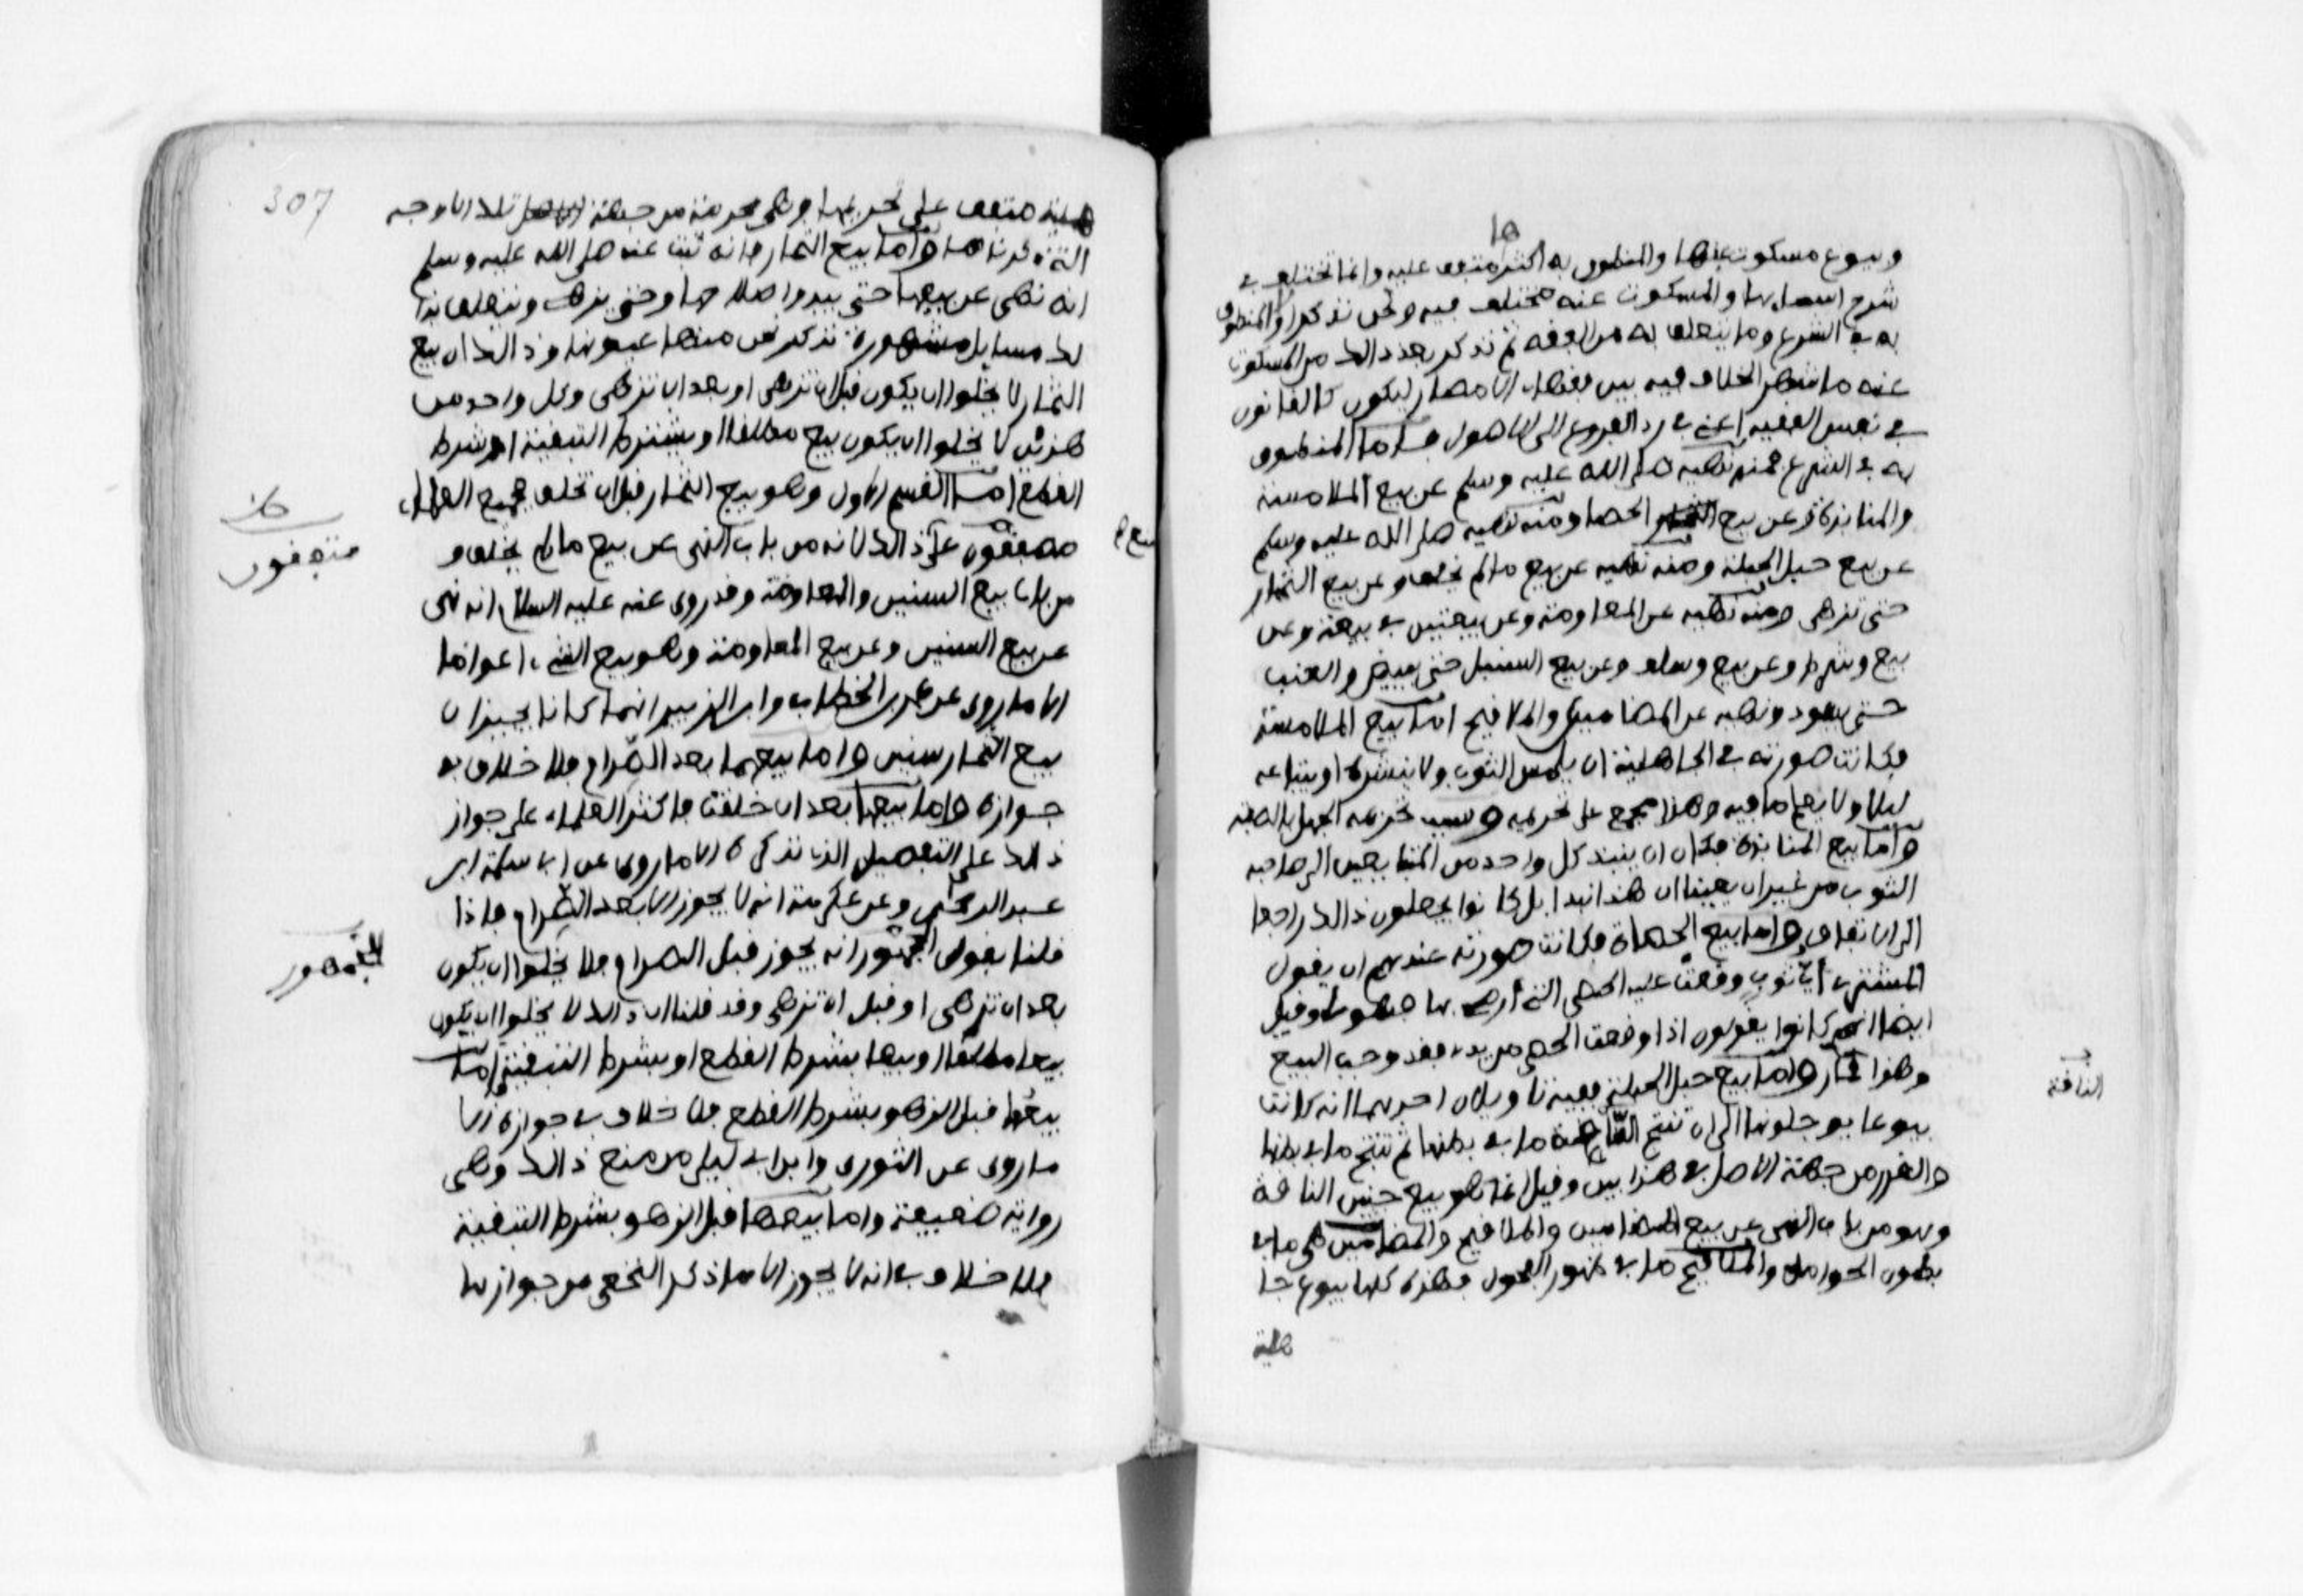 وبيوع مسكوت عنها والمنطوق به اكثرها متفق عليه وانما يختلف في
شرح اسمائها والمسكوت عنه مختلف فيه ونحن نذكر اولا المنطوق
به في الشرع وما يتعلق به من الفقه ثم نذكر بعد ذالك من المسكوت
عنه ما شهر الخلاف فيه بين فقهاء الامصار ليكون كالقانون
في نفس الفقيه اعني في رد الفروع الى الاصول فاما المنطوق
به في الشرع فمنه نهيه صلى الله عليه وسلم عن بيع الملامسة
والمنابذة وعن بيع الحصا ومنه نهيه صلى الله عليه وسلم
عن بيع حبل الحبلة ومنه نهيه عن بيع ما لم يخلق وعن بيع الثمار
حتى تزهى ومنه نهيه عن المعاومة وعن بيعتين في بيعة وعن
بيع وشرط وعن بيع وسلف وعن بيع السنبل حتى يبيض والعنب
حتى يسود ونهيه عن المضامين والملاقيح اما بيع الملامسة
فكانت صورته في الجاهلية ان يلمس الثوب ولا ينشره او يبتاعه
ليلا ولا يعلم ما فيه وهذا مجمع على تحريمه وسبب تحريمه الجهل بالصفة
واما بيع المنابذة فكان ان ينبذ كل واحد من المتبايعين الى صاحبه
الثوب من غير ان يعينا ان هذا بهذا بل كانوا يجعلون ذالك راجعا
الى الاتفاق واما بيع الحصاة فكانت صورته عندهم ان يقول
المشتري اي ثوب وقعت عليه الحصى التي ارمي بها فهو لي وقيل
ايضا انهم كانوا يقولون اذا وقعت الحصى من يدي فقد وجب البيع
وهذا قمار واما بيع حبل الحبلة ففيه تاويلان احدهما انه كانت
بيوعا يوجلونها الى ان تنتج الناقة ما في بطنها ثم تنتج ما في بطنها
والغرر من جهة الاصل في هذا بين وقيل انما هو بيع جنين الناقة
وهو من باب النهي عن بيع المضامين والملاقيح والمضامين هي ما في
بطون الحوامل والملاقيح ما في ظهور الفحول فهذه كلها بيوع جا
هلية
الناقة
307
هلية متفق على تحريمها وهي محرمة من جهة تلك الاوجه
التي ذكرناها واما بيع الثمار فانه ثبت عنه صلى الله عليه وسلم
انه نهى عن بيعها حتى يبدوا صلاحها وحتى تزهى ويتعلق بذا
لك مسايل مشهورة نذكر نحن منها عيونها وذالك ان بيع
الثمار لا يخلوا ان يكون قبل ان تزهى او بعد ان تزهى وكل واحد من
هذين لا يخلوا ان يكون بيع مطلقا او بشرط التبقية او بشرط
القطع اما القسم الاول وهو بيع الثمار قبل ان تخلق فجميع العلماء
على ذالك لانه من باب النهي عن بيع ما لم يخلق و
من باب بيع السنين والمعاومة وقد روي عنه عليه السلام انه نهى
عن بيع السنين وعن بيع المعاومة وهو بيع الشجر اعواما
الا ما روي عن عمر بن الخطاب وابن الزبير انهما كانا يجيزان
بيع الثمار سنين واما بيعها بعد الصرام فلا خلاف في
جوازه واما بيعها بعد ان خلقت فاكثر العلماء على جواز
ذالك على التفصيل الذي نذكره الا ما روي عن ابي سلمة ابن
عبد الرحمن وعن عكرمة انه لا يجوز الا بعد الصرام فاذا
قلنا بقول الجمهور انه يجوز قبل الصرام فلا يخلوا ان يكون
بعد ان تزهى او قبل ان تزهى وقد قلنا ان ذالك لا يخلوا ان يكون
بيعا مطلقا او بيعا بشرط القطع او بشرط التبقية اما
بيعها قبل الزهو بشرط القطع فلا خلاف في جوازه الا
ما روي عن الثوري وابن ابي ليلى من منع ذالك وهي
رواية ضعيفة واما بيعها قبل الزهو بشرط التبقية
فلا خلاف في انه لا يجوز الا ما ذكر اللخمي من جوازها
متفقون
الجمهور